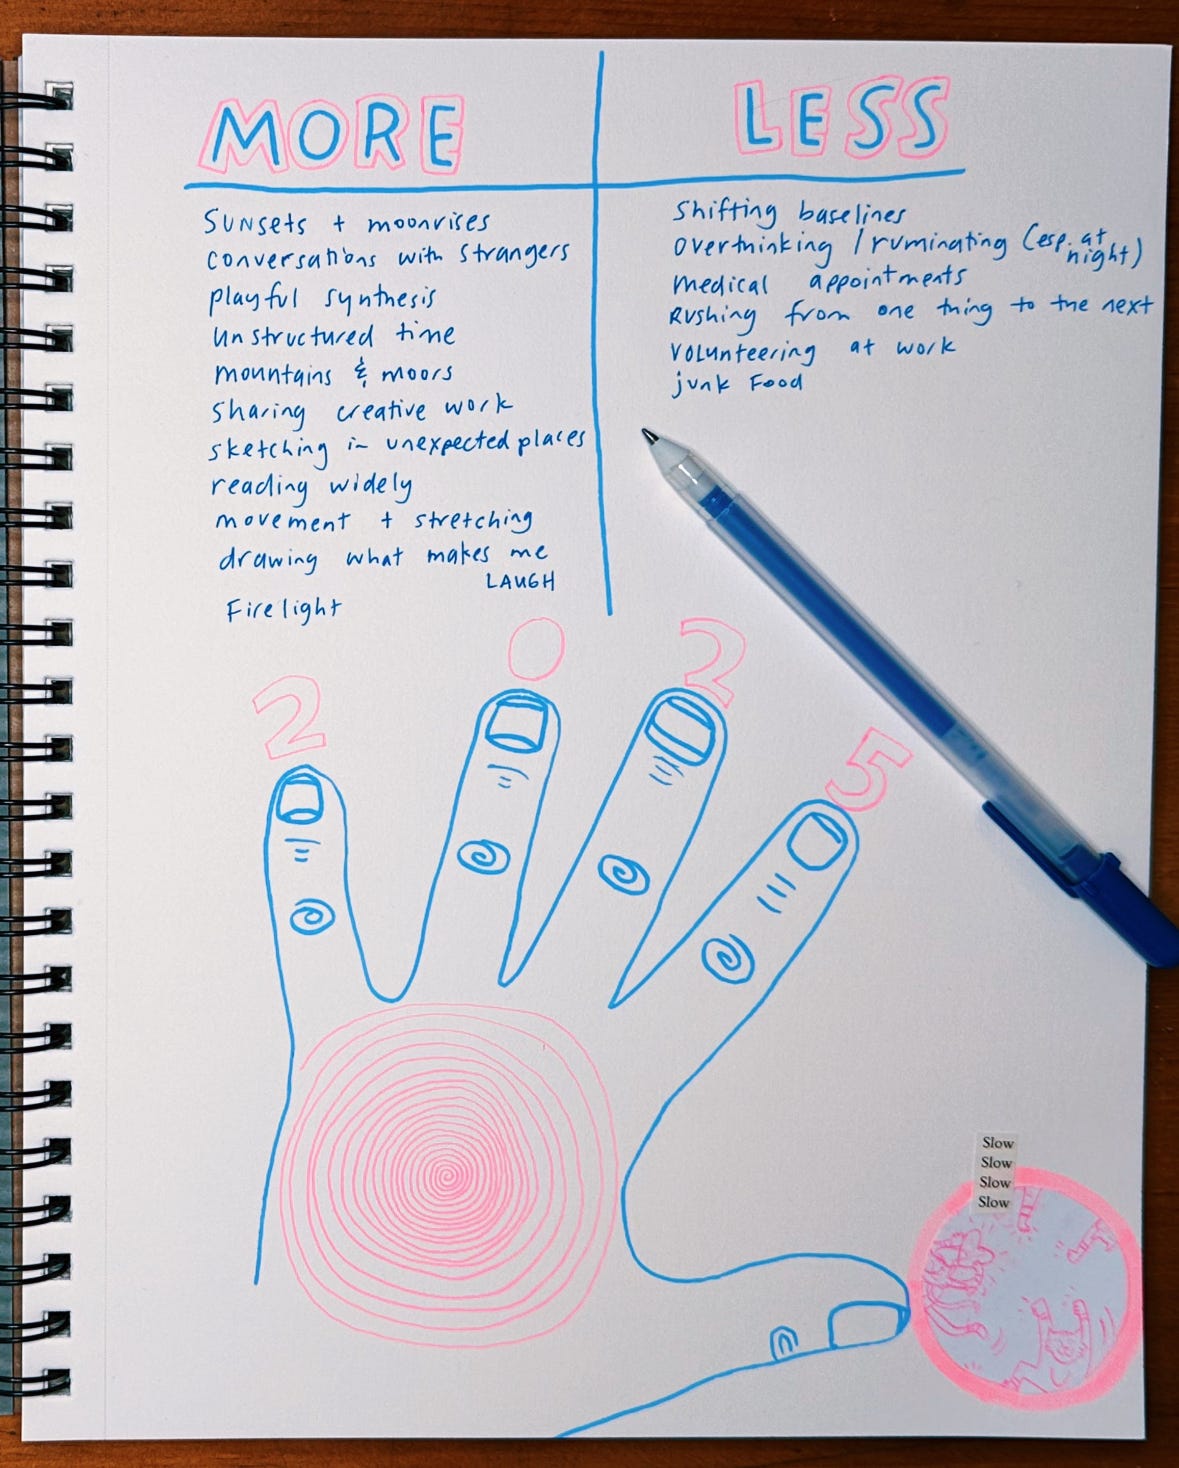 MORE
Sunsets + moonrises
conversations with strangers
playful synthesis
unstructured time
mountains & moors
sharing creative work
sketching in unexpected places
reading widely
movement + stretching
drawing what makes me
LAUGH
Firelight
LESS
Shifting baselines
overthinking / ruminating (esp. at
night)
medical appointments
Rushing from one thing to the next
volunteering at work
junk Food
2 0 2 5
Slow
Slow
Slow
Slow